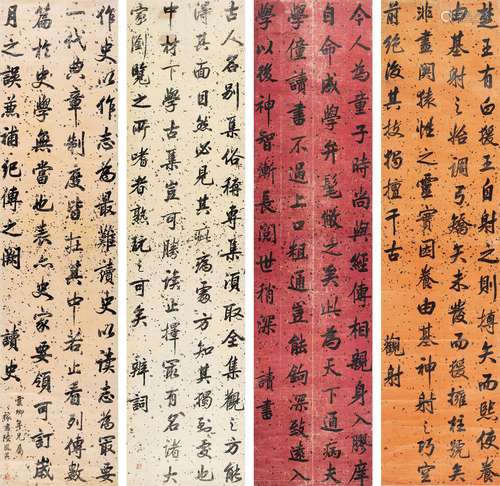 楚王有白猨王自射之則搏矢而熙使養
由基射之始調弓矯矢未發而猨擁柱號矣
非盡關猿性之靈實因養由基神射之巧空
前絕後其技獨擅千古 觀射
今人為童子時尚與經傳相親身入膠庠
自命成學弁髦儆之矣此為天下通病夫
學僮讀書不過上口粗通豈能鉤深致遠入
學以後神智漸長閱世稍深 讀書
古人各別集俗稱專集須取全集觀之方
得其面目然必見其疵病處方知其獨到處也
中材下學古集豈可勝讀止擇最有名諸大
家瀏覽之所嗜者熟玩之可矣 辭詞
作史以作志為最難讀史以讀志為最要
一代典章制度皆在其中若止看列傳數
篇於史學無當也表亦史家要領可訂歲
月之誤兼補紀傳之闕 讀史
雲卿年兄屬